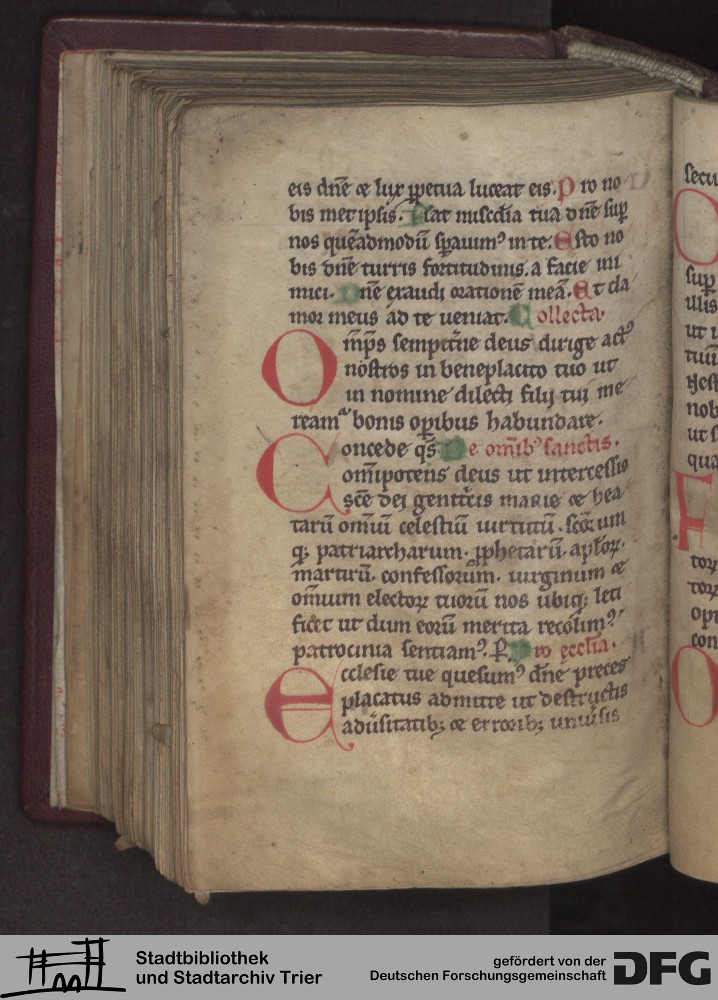 eis dn̄e ⁊ lux ꝑpetua luceat eis. Pro no
bis met ipsis. Fiat misc̄dia tua dn̄e suꝑ
nos quēadmodū sꝑauimꝰ in te. Esto no
bis dn̄e turris fortitudinis. a facie ini
mici. Dn̄e exaudi orationē meā. Et cla
mor meus ad te ueniat. Collecta.
Om̄ps sempit̄ne deus dirige actꝰ
nostros in beneplacito tuo ut
in nomine dilecti filij tui me
reamᷣ bonis oꝑibus habundare.
Concede qs̄ De om̄ibꝰ sanctis.
om̄ipotens deus ut intercessio
sc̄e dei genit̄cis marie ⁊ bea
tarū omiū celestiū uirtutū. sc̄orum
qꝫ patriarcharum. ꝓphetarū. apl̄oꝝ.
martirū. confessorum. uirginum ⁊
omium electoꝝ tuorū nos ubiqꝫ leti
ficet ut dum eorū merita recolimꝰ
patrocinia sentiamꝰ. P. Pro eccl̄ia.
Ecclesie tue quesumꝰ dn̄e preces
placatus admitte ut destructis
aduersitatibꝫ ⁊ erroribꝫ uniuersis
secu
suꝑ
illis
ut
tuū
nob
ut s
qua
F
toꝝ
toꝝ
con
O
Stadtbibliothek
und Stadtarchiv Trier
gefördert von der
Deutschen Forschungsgemeinschaft
DFG